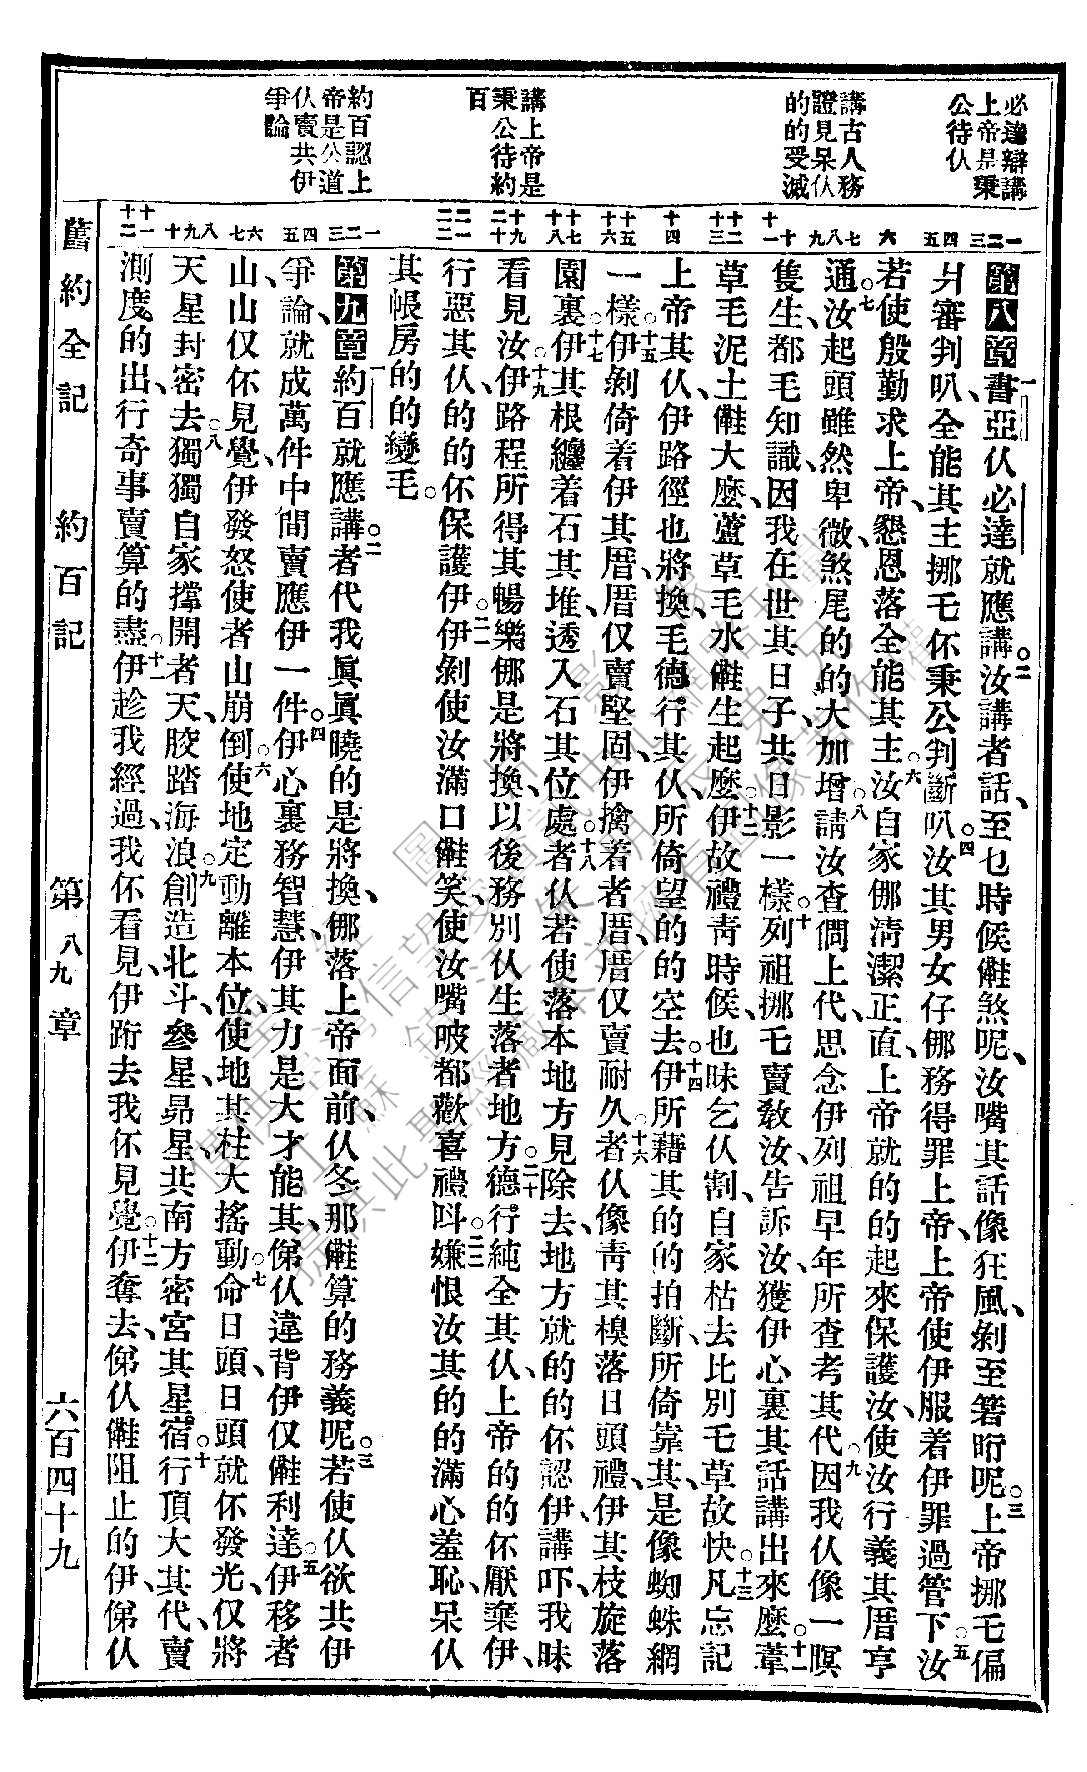 必達辯講
上帝是秉
公待仈
講古人務
證見呆仈
的的受滅
講上帝是
秉公待約
百
約百認上
帝是公道
仈賣共伊
爭論
第八章書亞仈必達就應講汝講者話至乜時候𠆧煞呢汝嘴其話像狂風剝至箬時呢上帝挪乇偏
爿審判叭全能其主挪乇伓秉公判斷叭汝其男女仔㑚務得罪上帝上帝使伊服着伊罪過管下汝
若使殷勤求上帝懇恩落全能其主汝自家㑚清潔正直上帝就的的起來保護汝使汝行義其厝亨
通汝起頭雖然卑微煞尾的的大加增請汝查問上代思念伊列祖早年所查考其代因我仈像一暝
隻生都毛知識因我在世其日子共日影一樣列祖挪乇賣教汝告訴汝獲伊心裏其話講出來麼葦
草毛泥土𠆧大麼蘆草毛水𠆧生起麼伊故禮青時候也昧乞仈割自家枯去比別乇草故快凡忘記
上帝其仈伊路徑也將換毛德行其仈所倚望的的空去伊所藉其的的拍斷所倚靠其是像蜘蛛網
一樣伊剝倚着伊其厝厝仅賣堅固伊擒着者厝厝仅賣耐久者仈像青其模落日頭禮伊其枝旋落
園裏伊其根纏着石其堆透入石其位處者仈若使落本地方見除去地方就的的伓認伊講吓我昧
看見汝伊路程所得其暢樂㑚是將換以後務別仈生落者地方德行純全其仈上帝的的伓厭棄伊
行惡其仈的的伓保護伊伊剝使汝滿口𠆧笑使汝嘴唆都歡喜禮呌嫌恨汝其的的滿心羞恥呆仈
其帳房的的變毛
第九章約百就應講者代我眞眞曉的是將換㑚落上帝面前仈冬那𠆧算的務義呢若使仈欲共伊
爭論就成萬件中間賣應伊一件伊心裏務智慧伊其力是大才能其俤仈違背伊仅𠆧利達伊移者
山山仅伓見覺伊發怒使者山崩倒使地定動離本位使地其柱大搖動命日頭日頭就伓發光仅將
天星封密去獨獨自家撐開者天骹踏海浪創造北斗參星昴星共南方密宮其星宿行頂大其代賣
測度的出行奇事賣算的盡伊趁我經過我伓看見伊跡去我伓見覺伊奪去俤仈𠆧阻止的伊俤仈
舊約全記 約百記 第八九章 六百四十九